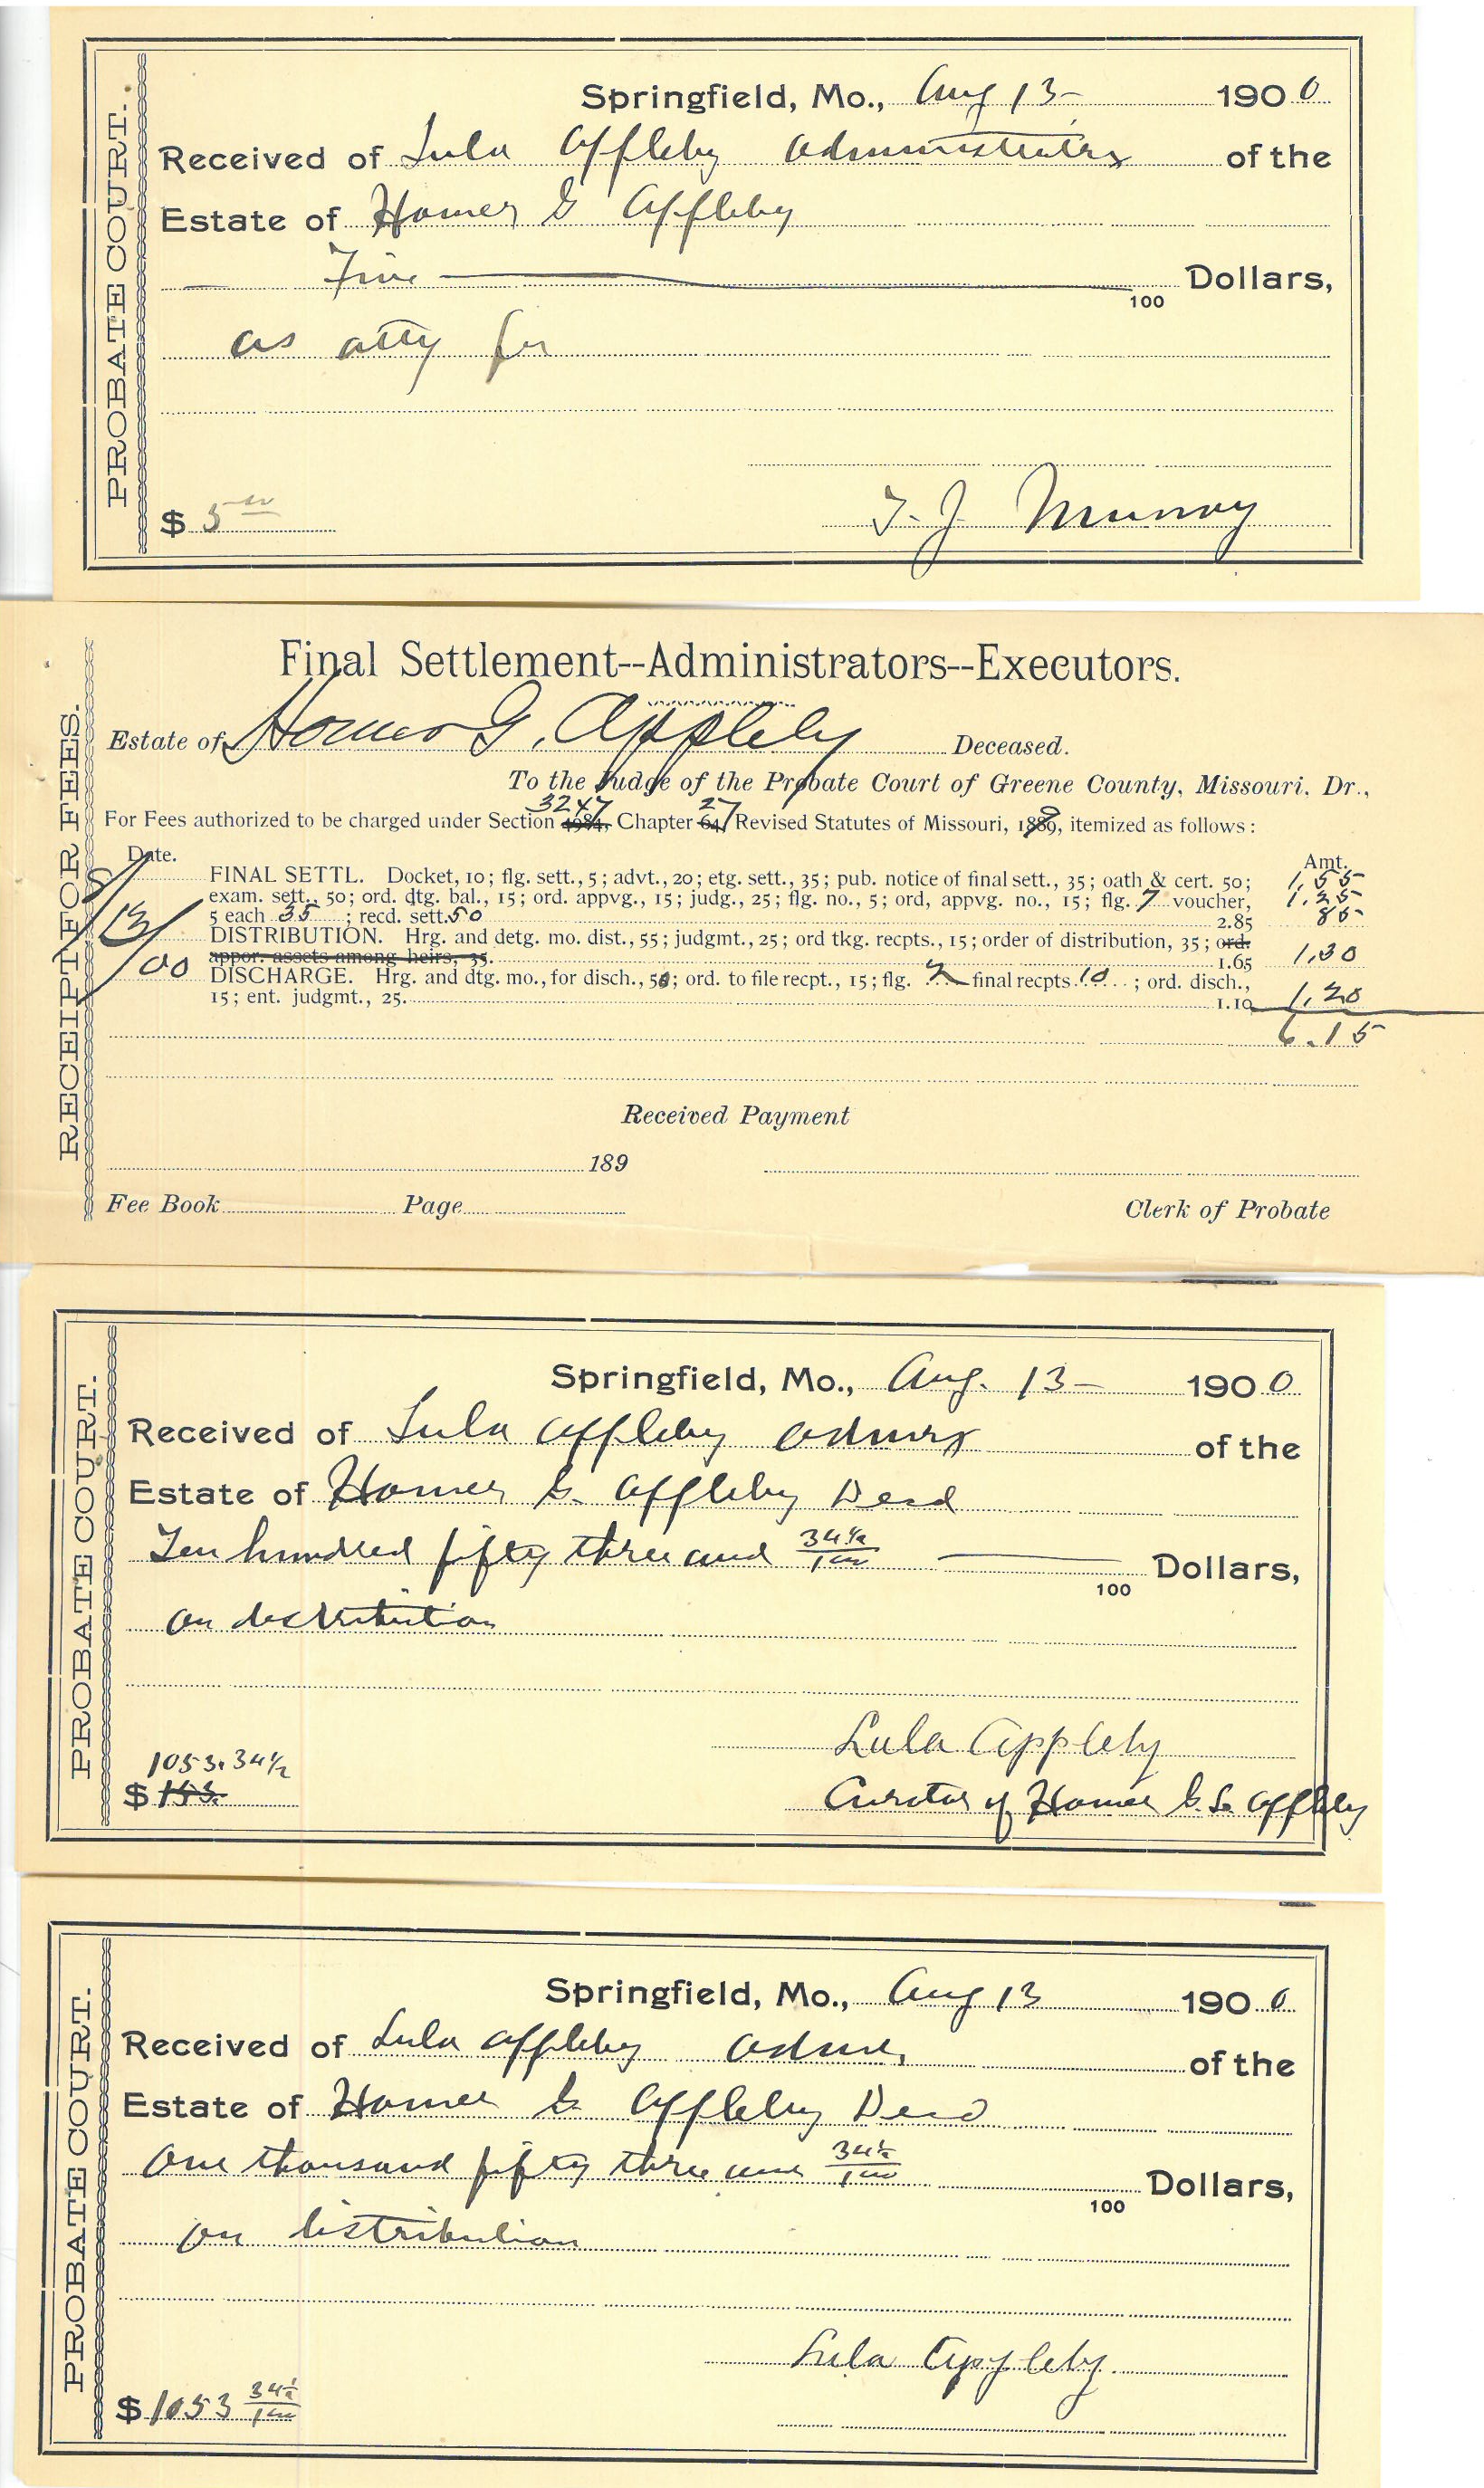 PROBATE COURT.
Springfield, Mo., Aug 13- 1900
Received of Lula Appleby Administratrix of the
Estate of Homer G Appleby
Five 100 Dollars,
as atty fee
$ 5 00
T. J. Murray
RECEIPT FOR FEES.
Final Settlement--Administrators--Executors.
Estate of Homer G. Appleby Deceased.
To the Judge of the Probate Court of Greene County, Missouri. Dr.,
3247 27
For Fees authorized to be charged under Section 4984, Chapter 64, Revised Statutes of Missouri, 1889, itemized as follows:
Date. Amt.
8/13/00
FINAL SETTL. Docket, 10; flg. sett., 5; advt., 20; etg. sett., 35; pub. notice of final sett., 35; oath & cert. 50; 1.55
exam. sett., 50; ord. dtg. bal., 15; ord. appvg., 15; judg., 25; flg. no., 5; ord, appvg. no., 15; flg. 7 voucher, 1.25
5 each 35; recd. sett. 50 2.85 85
DISTRIBUTION. Hrg. and detg. mo. dist., 55; judgmt., 25; ord tkg. recpts., 15; order of distribution, 35; ord.
appor. assets among heirs, 35. 1.65 1.30
DISCHARGE. Hrg. and dtg. mo., for disch., 50; ord. to file recpt., 15; flg. 2 final recpts. 10; ord. disch.,
15; ent. judgmt., 25. 1.10 1.20
6.15
Received Payment
189
Fee Book Page Clerk of Probate
PROBATE COURT.
Springfield, Mo., Aug. 13- 1900
Received of Lula Appleby Admrx of the
Estate of Homer G. Appleby Decd
Ten hundred fifty three and 34½/100 100 Dollars,
on distribution
Lula Appleby
1053.34½
$ 153.
Curator of Homer G. S. Appleby
PROBATE COURT.
Springfield, Mo., Aug 13 1900
Received of Lula Appleby Admx of the
Estate of Homer G. Appleby Decd
One thousand fifty three and 34½/100
100 Dollars,
on distribution
Lula Appleby
$ 1053 34½/100